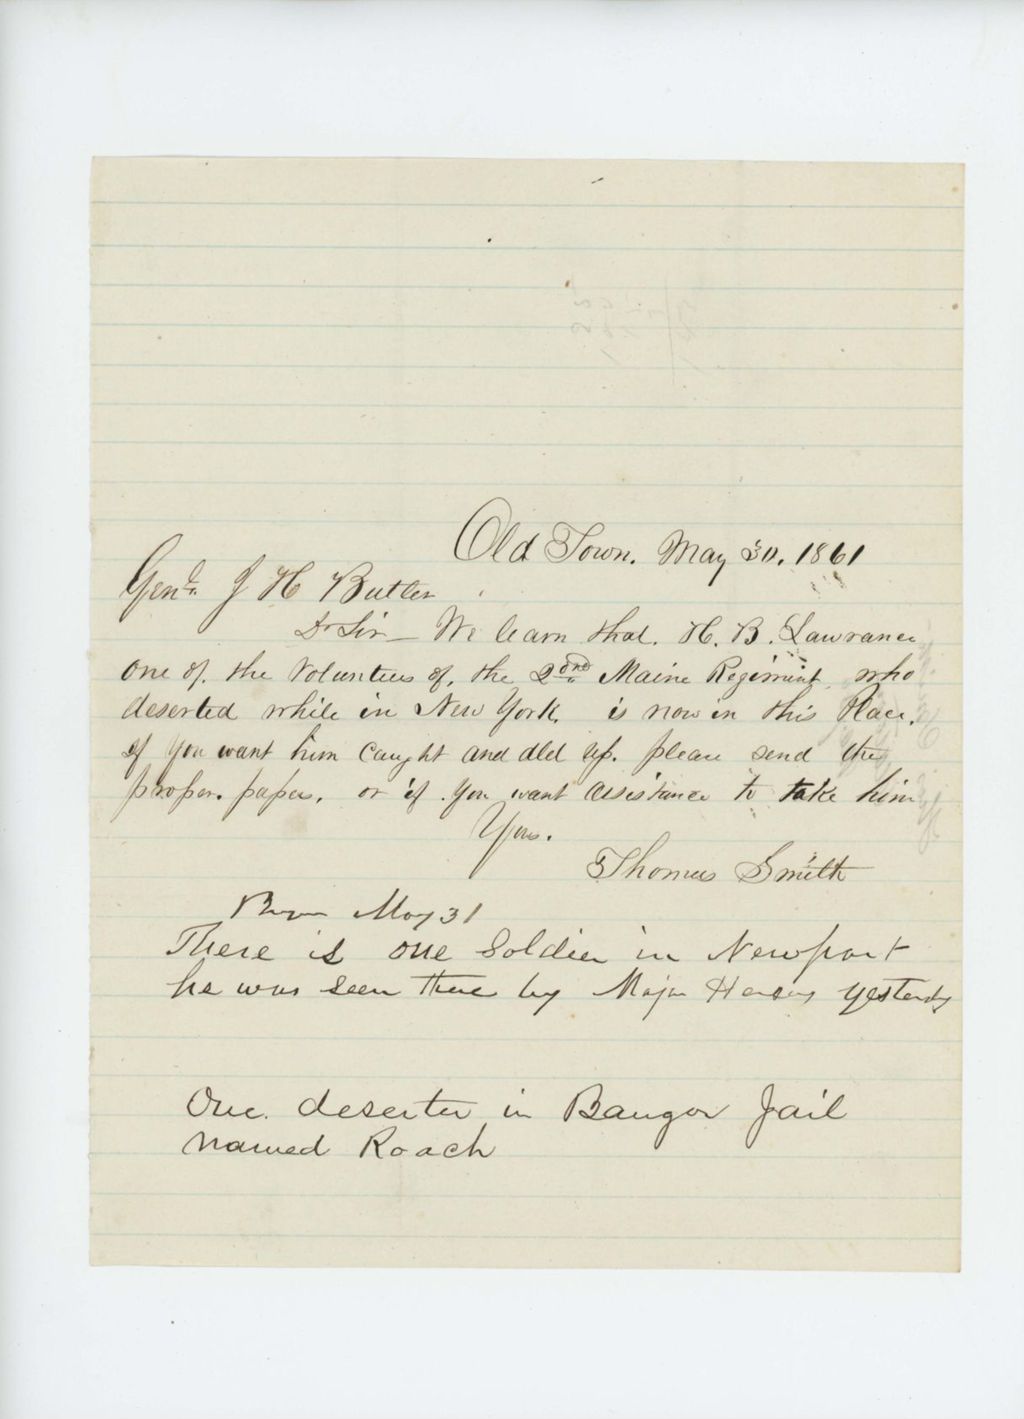 Old Town. May 30. 1861
Genl. J H Butler
Dr Sir - We learn that. H. B. Lawrance
one of. the Voluntees of. the 2ond. Maine Regiment who
deserted while in New York. is now in this Place.
if you want him caught and up. please send the
proper. papers. or if you want assistance to take him
Yors.
Thomas Smith
May 31
There is one Soldier in Newport
he was seen there by Major yesterdy
One. deserter in Bangor Jail
named Roach